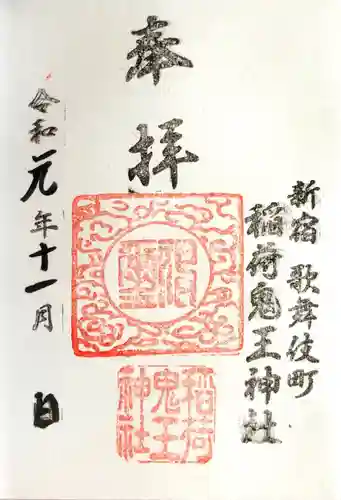 新宿 歌舞伎町
稲荷鬼王神社
奉拝
令和元年十一月 日
稲荷
鬼王
神社